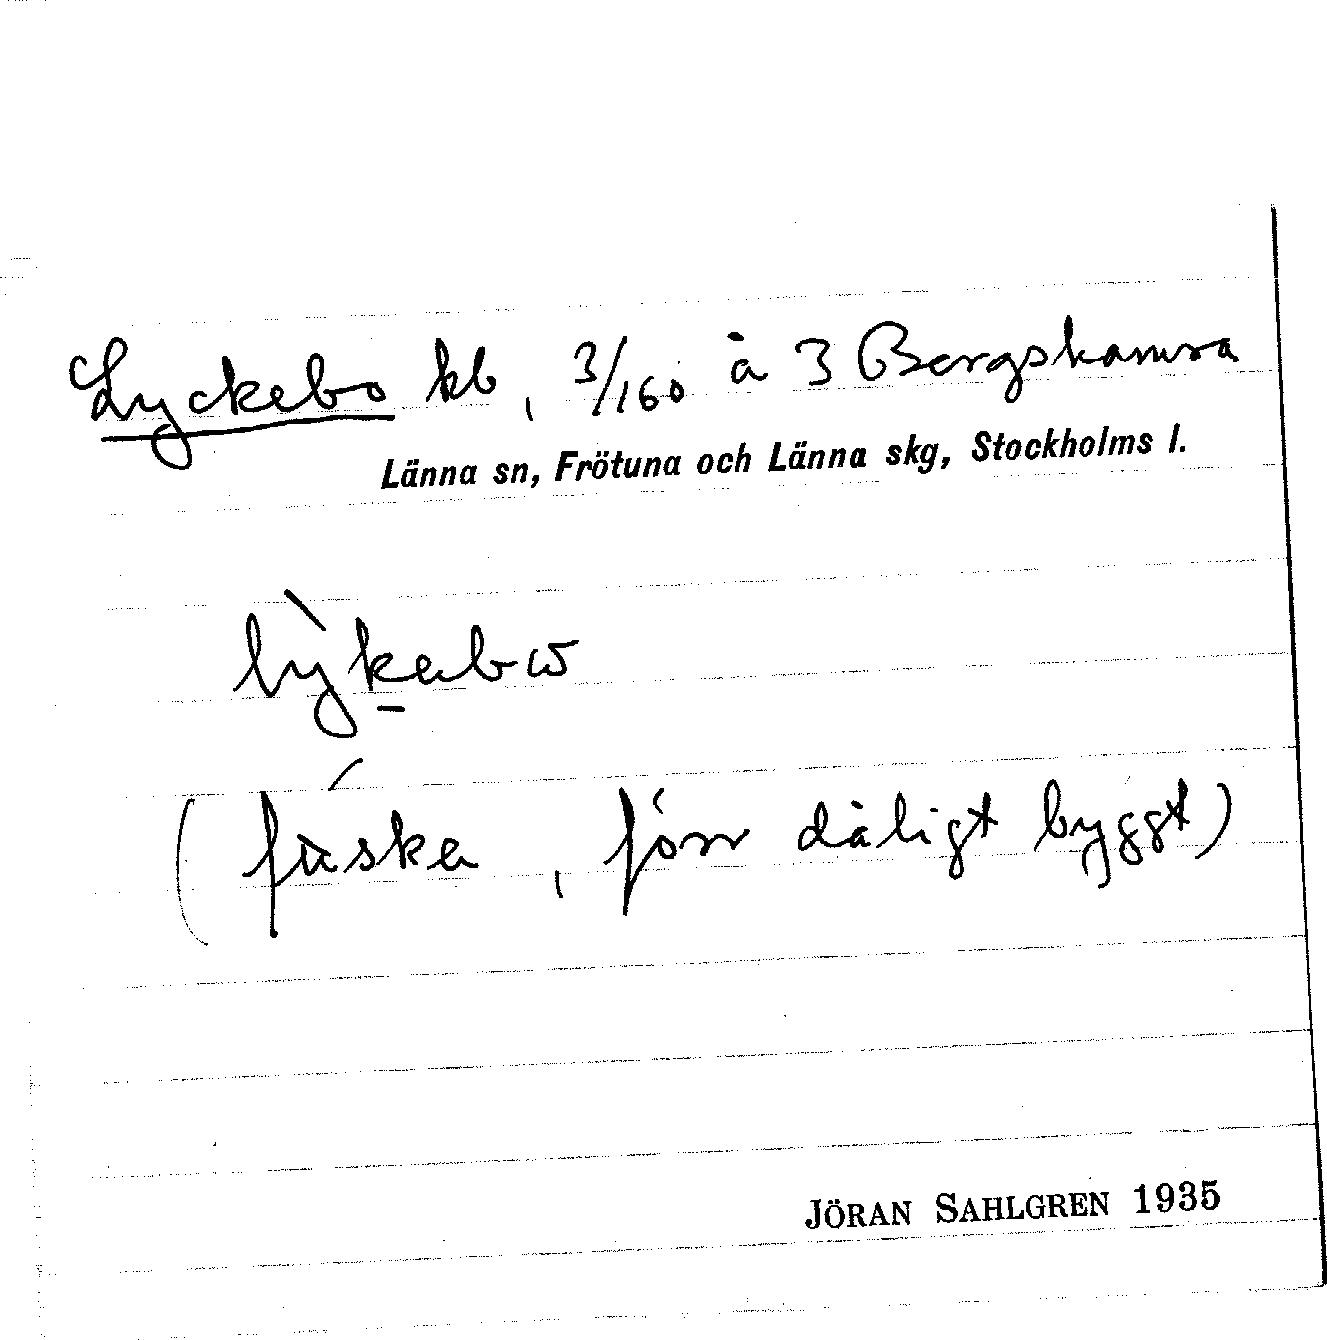 Lyckebo kb, 3/160 à 3 Bergshamra
Länna sn, Frötuna och Länna skg, Stockholms l.
lỳkabω
(fúska, förr dåligt byggt)
JÖRAN SAHLGREN 1935